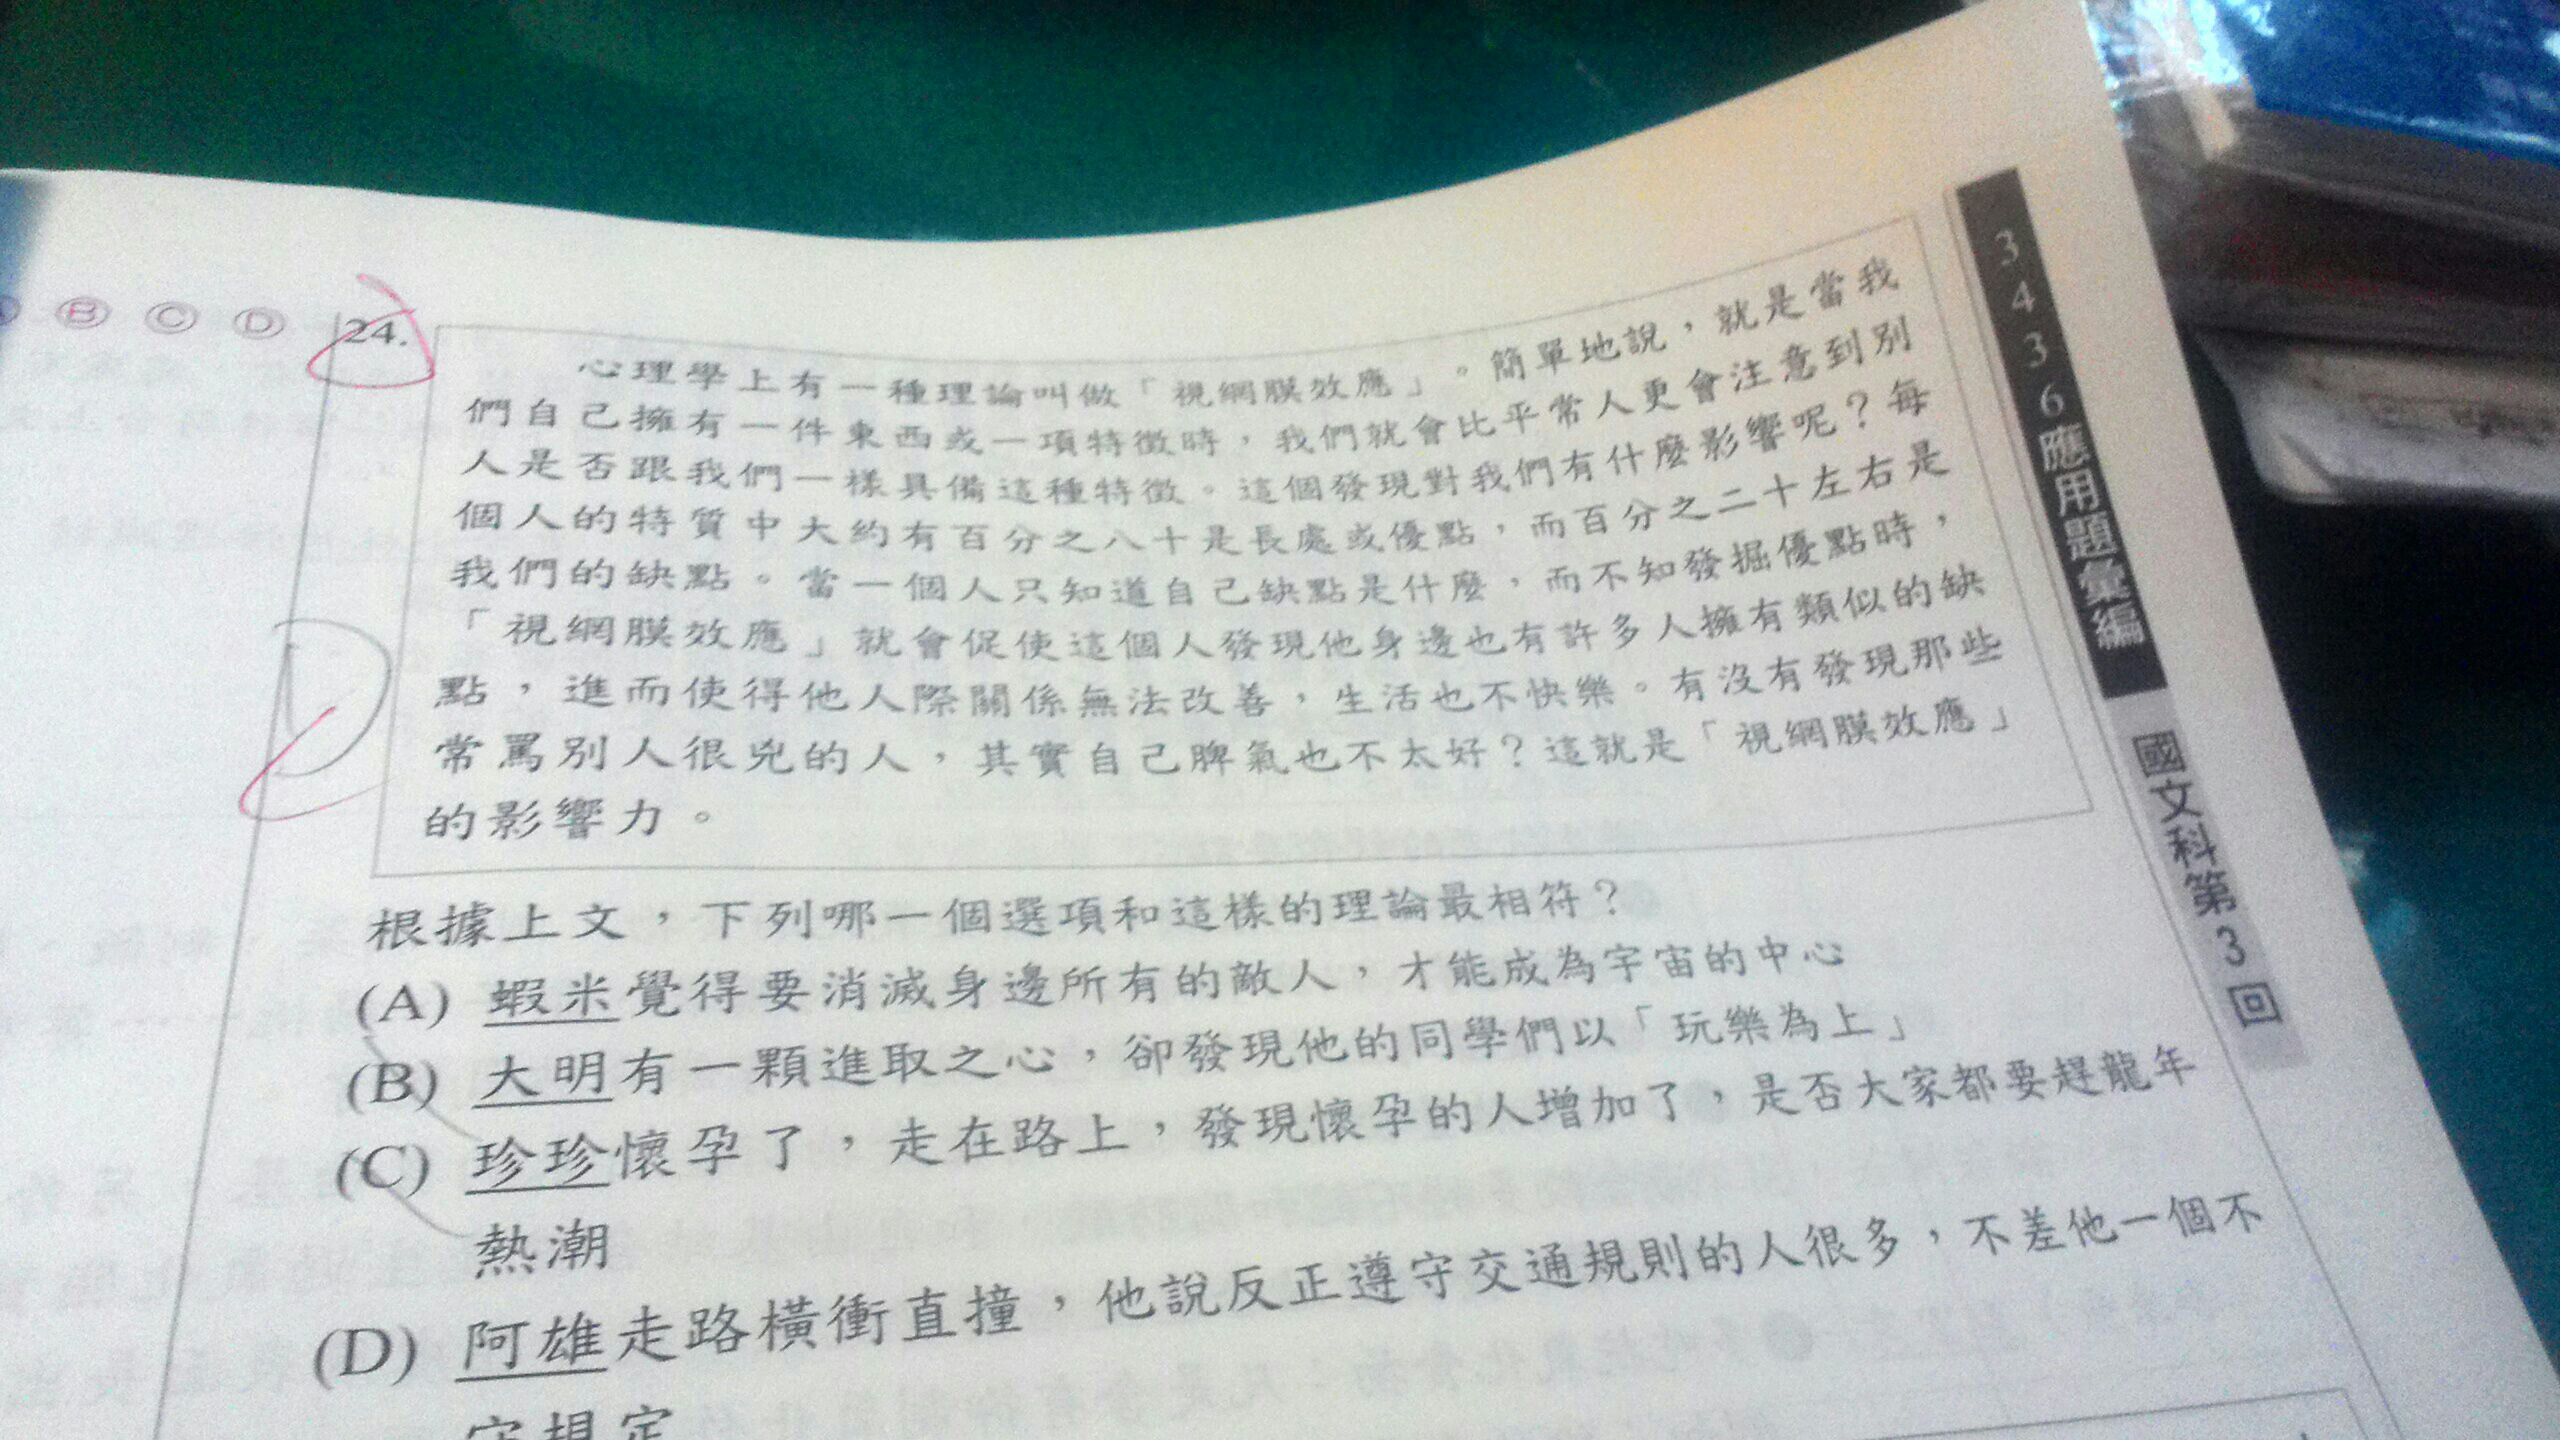 Ⓑ Ⓒ Ⓓ
24.
心理學上有一種理論叫做「視網膜效應」。簡單地說，就是當我
們自己擁有一件東西或一項特徵時，我們就會比平常人更會注意到別
人是否跟我們一樣具備這種特徵。這個發現對我們有什麼影響呢？每
個人的特質中大約有百分之八十是長處或優點，而百分之二十左右是
我們的缺點。當一個人只知道自己缺點是什麼，而不知發掘優點時，
「視網膜效應」就會促使這個人發現他身邊也有許多人擁有類似的缺
點，進而使得他人際關係無法改善，生活也不快樂。有沒有發現那些
常罵別人很兇的人，其實自己脾氣也不太好？這就是「視網膜效應」
的影響力。
根據上文，下列哪一個選項和這樣的理論最相符？
(A) 蝦米覺得要消滅身邊所有的敵人，才能成為宇宙的中心
(B) 大明有一顆進取之心，卻發現他的同學們以「玩樂為上」
(C) 珍珍懷孕了，走在路上，發現懷孕的人增加了，是否大家都要趕龍年
熱潮
(D) 阿雄走路橫衝直撞，他說反正遵守交通規則的人很多，不差他一個不
守規定
3436應用題彙編 國文科第3回